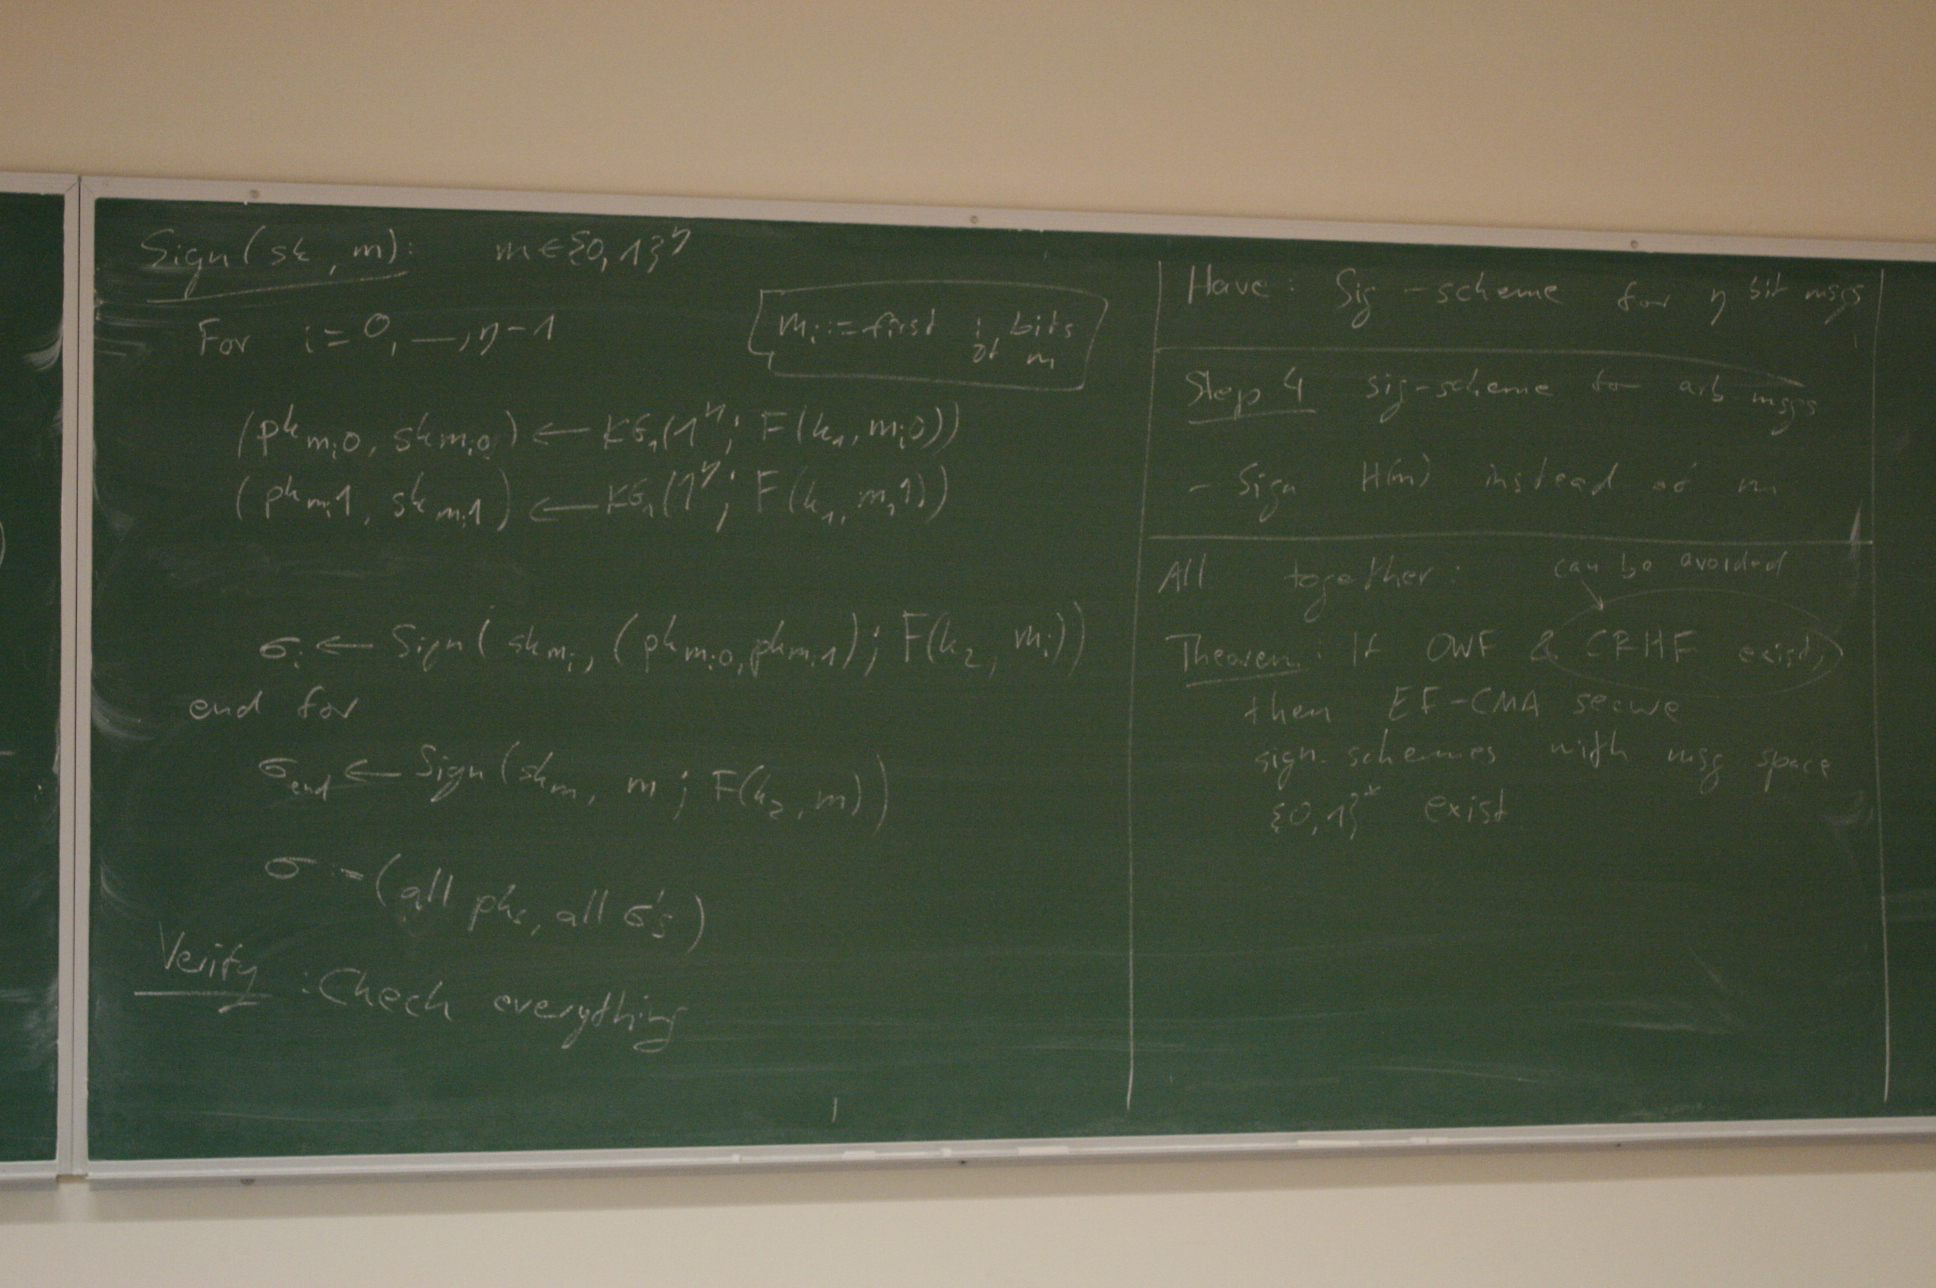 Sign(sk, m): m∈{0,1}^η
For i=0,—,η-1
m_i := first i bits
of m
(pk_{m_i0}, sk_{m_i0}) ← KG_1(1^η; F(k_1, m_i0))
(pk_{m_i1}, sk_{m_i1}) ← KG_1(1^η; F(k_1, m_i1))
σ_i ← Sign(sk_{m_i}, (pk_{m_i0}, pk_{m_i1}); F(k_2, m_i))
end for
σ_end ← Sign(sk_m, m; F(k_2, m))
σ := (all pks, all σ's)
Verify: Check everything
Have: Sig-scheme for η bit msgs
Step 4 sig-scheme for arb msgs
- Sign H(m) instead of m
All together: can be avoided
Theorem: If OWF & CRHF exist,
then EF-CMA secure
sign. schemes with msg space
{0,1}* exist